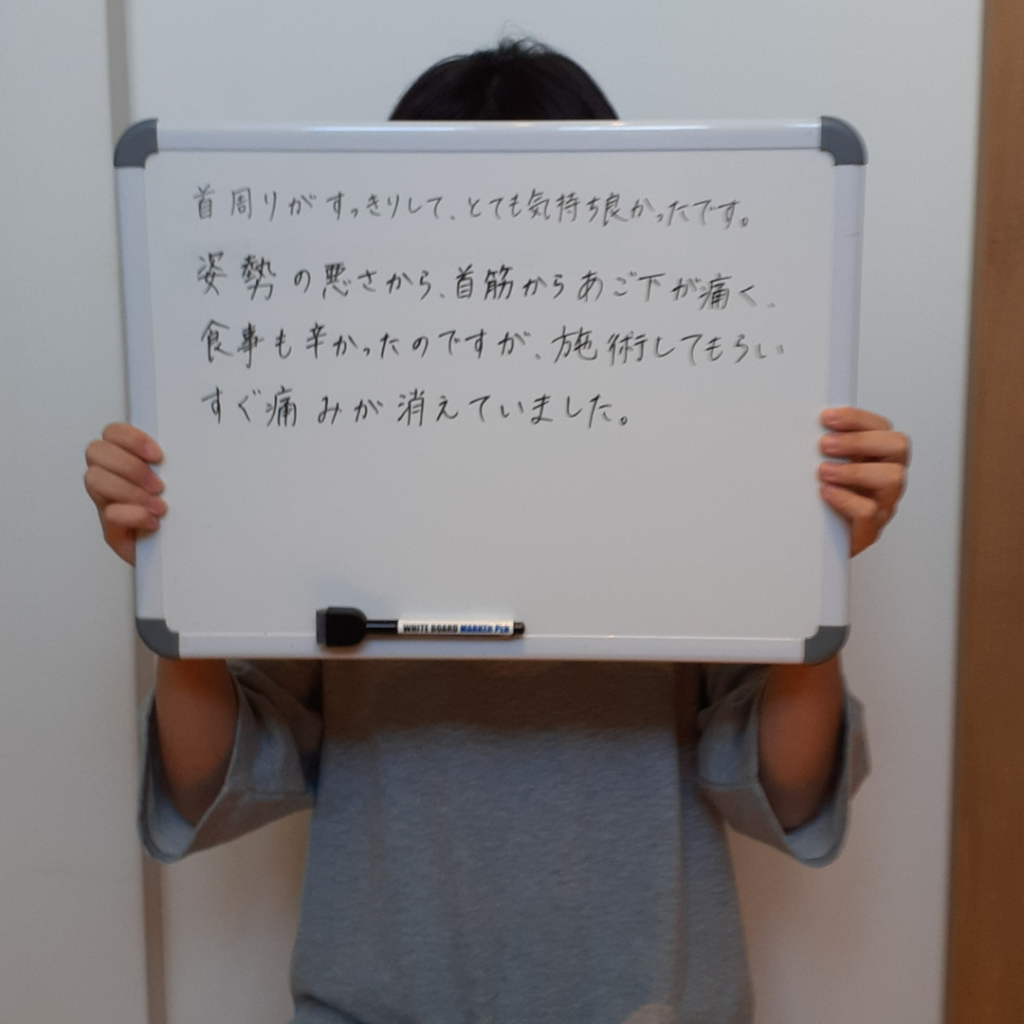 首周りがすっきりして、とても気持ち良かったです。
姿勢の悪さから、首筋からあご下が痛く、
食事も辛かったのですが、施術してもらい
すぐ痛みが消えていました。
WHITE BOARD MARKER PEN